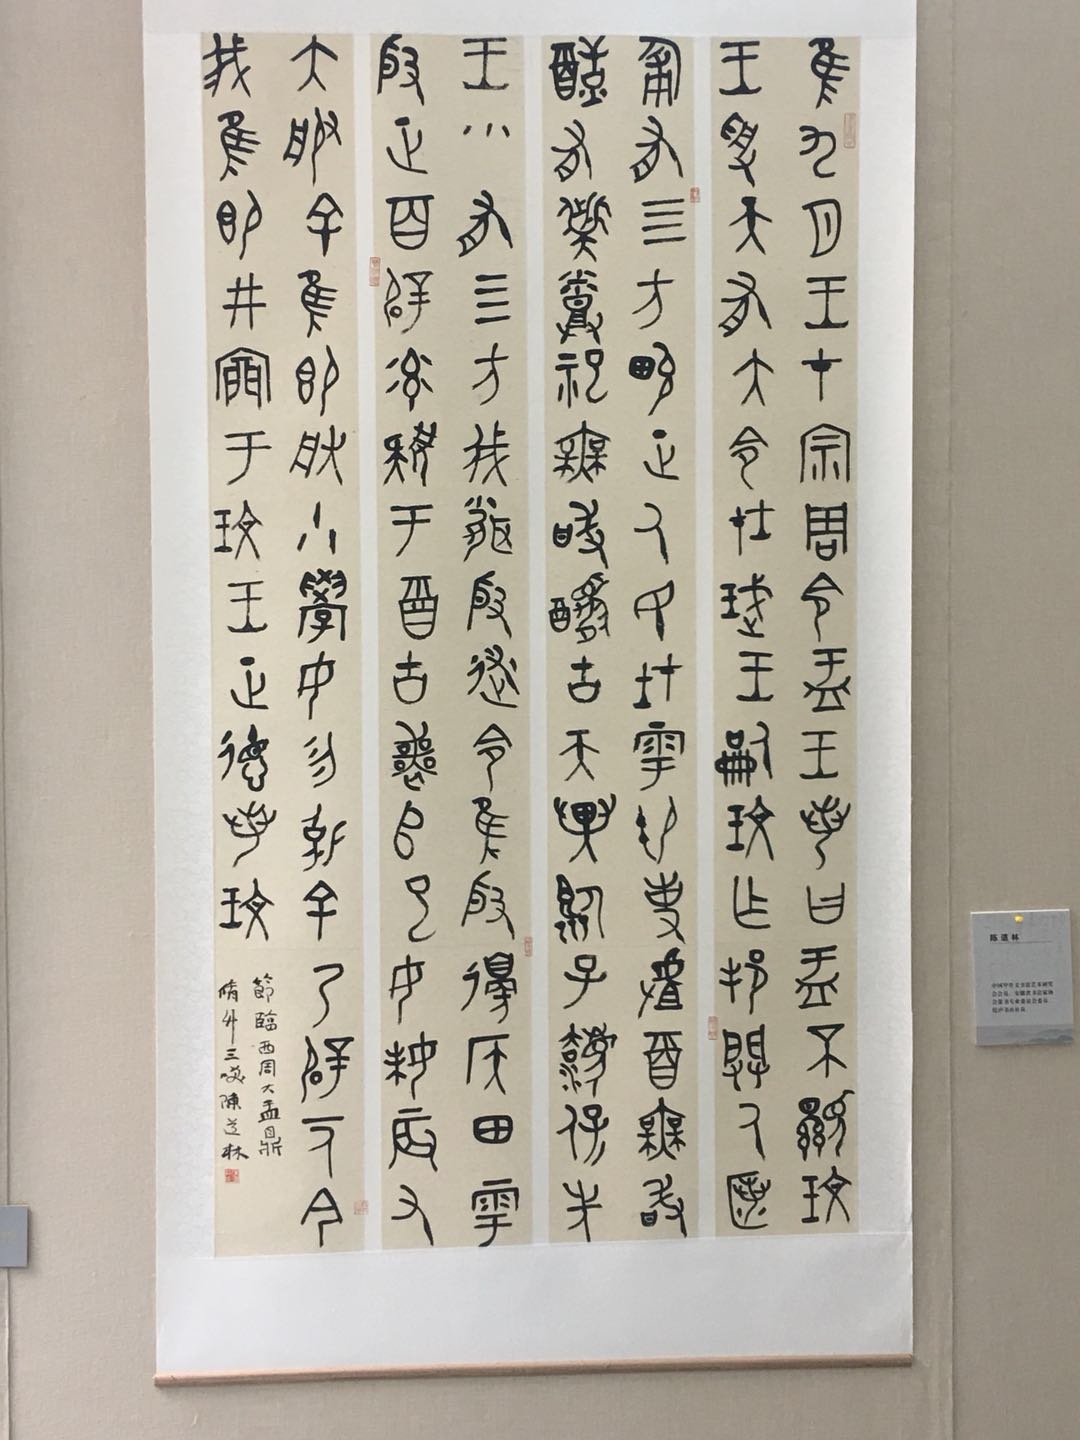 隹九月王才宗周令盂王若曰盂不顯玟
王受天有大令在珷王嗣玟乍邦闢氒匿
匍有四方畯正氒民在雩御事𠭯酒無敢
酖有祡蒸祀無敢𨡭古天異臨子法保先
王有四方我聞殷述令隹殷邊侯田雩
殷正百辟率肄于酒古喪𠂤巳女妹辰又
大服余隹即朕小學女勿剋余乃辟一人今
我隹即井㐭于玟王正德若玟
節臨西周大盂鼎
陳道林
陈道林
中国甲骨文书法艺术研究